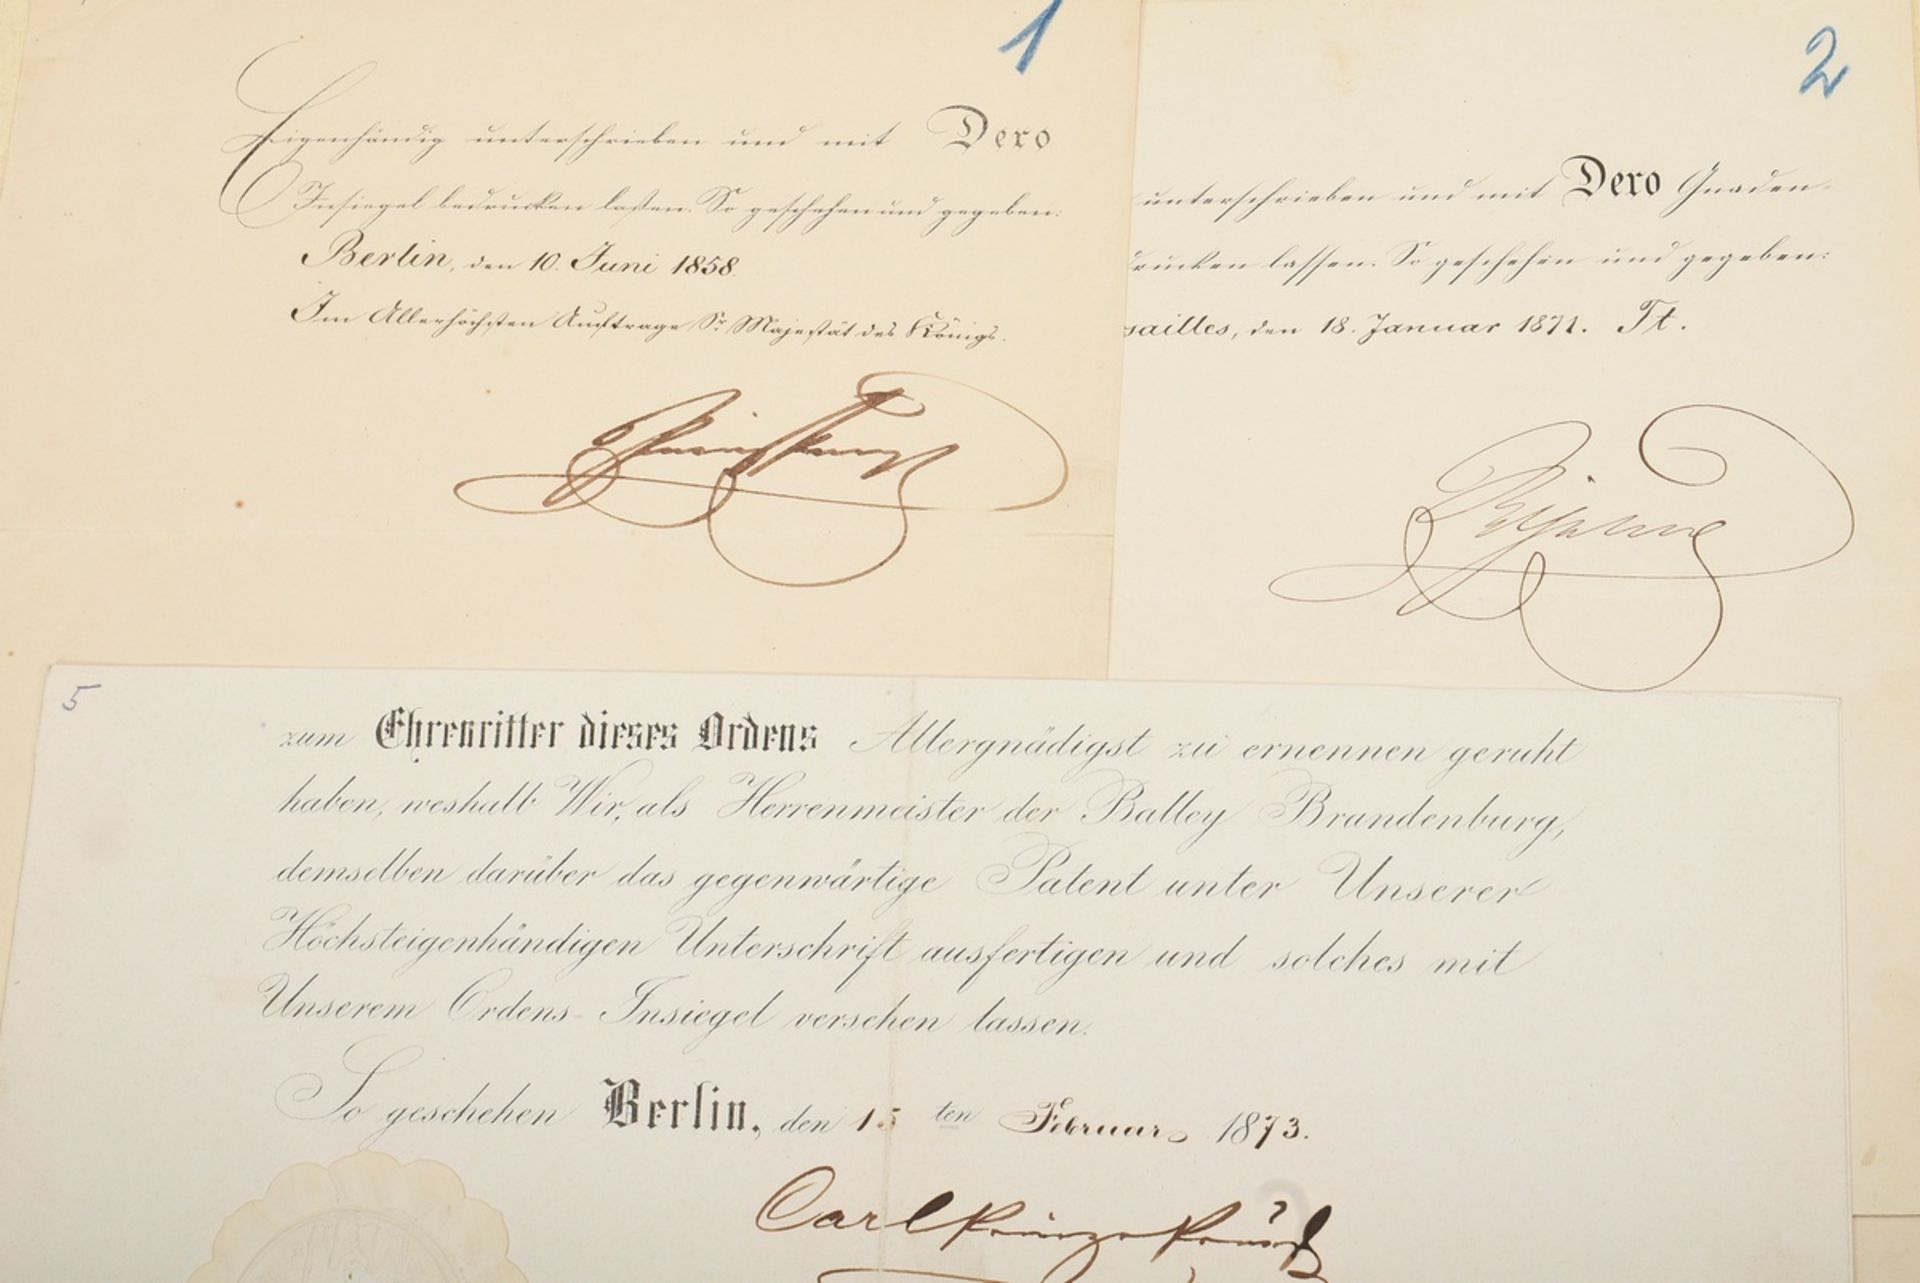 1
Eigenhändig unterschrieben und mit Dero
Insiegel bedrucken laßen. So geschehen und gegeben:
Berlin, den 10. Juni 1858.
Im Allerhöchsten Auftrage Sr Majestät des Königs.
2
unterschrieben und mit Dero Gnaden-
drucken lassen. So geschehen und gegeben:
sailles, den 18. Januar 1871. Tt.
5
zum Ehrenritter dieses Ordens Allergnädigst zu ernennen geruht
haben, weshalb Wir, als Herrenmeister der Balley Brandenburg,
demselben darüber das gegenwärtige Patent unter Unserer
Höchsteigenhändigen Unterschrift ausfertigen und solches mit
Unserem Ordens-Insiegel versehen lassen.
So geschehen Berlin, den 15ten Februar 1873.
Carl Prinz v Preußen